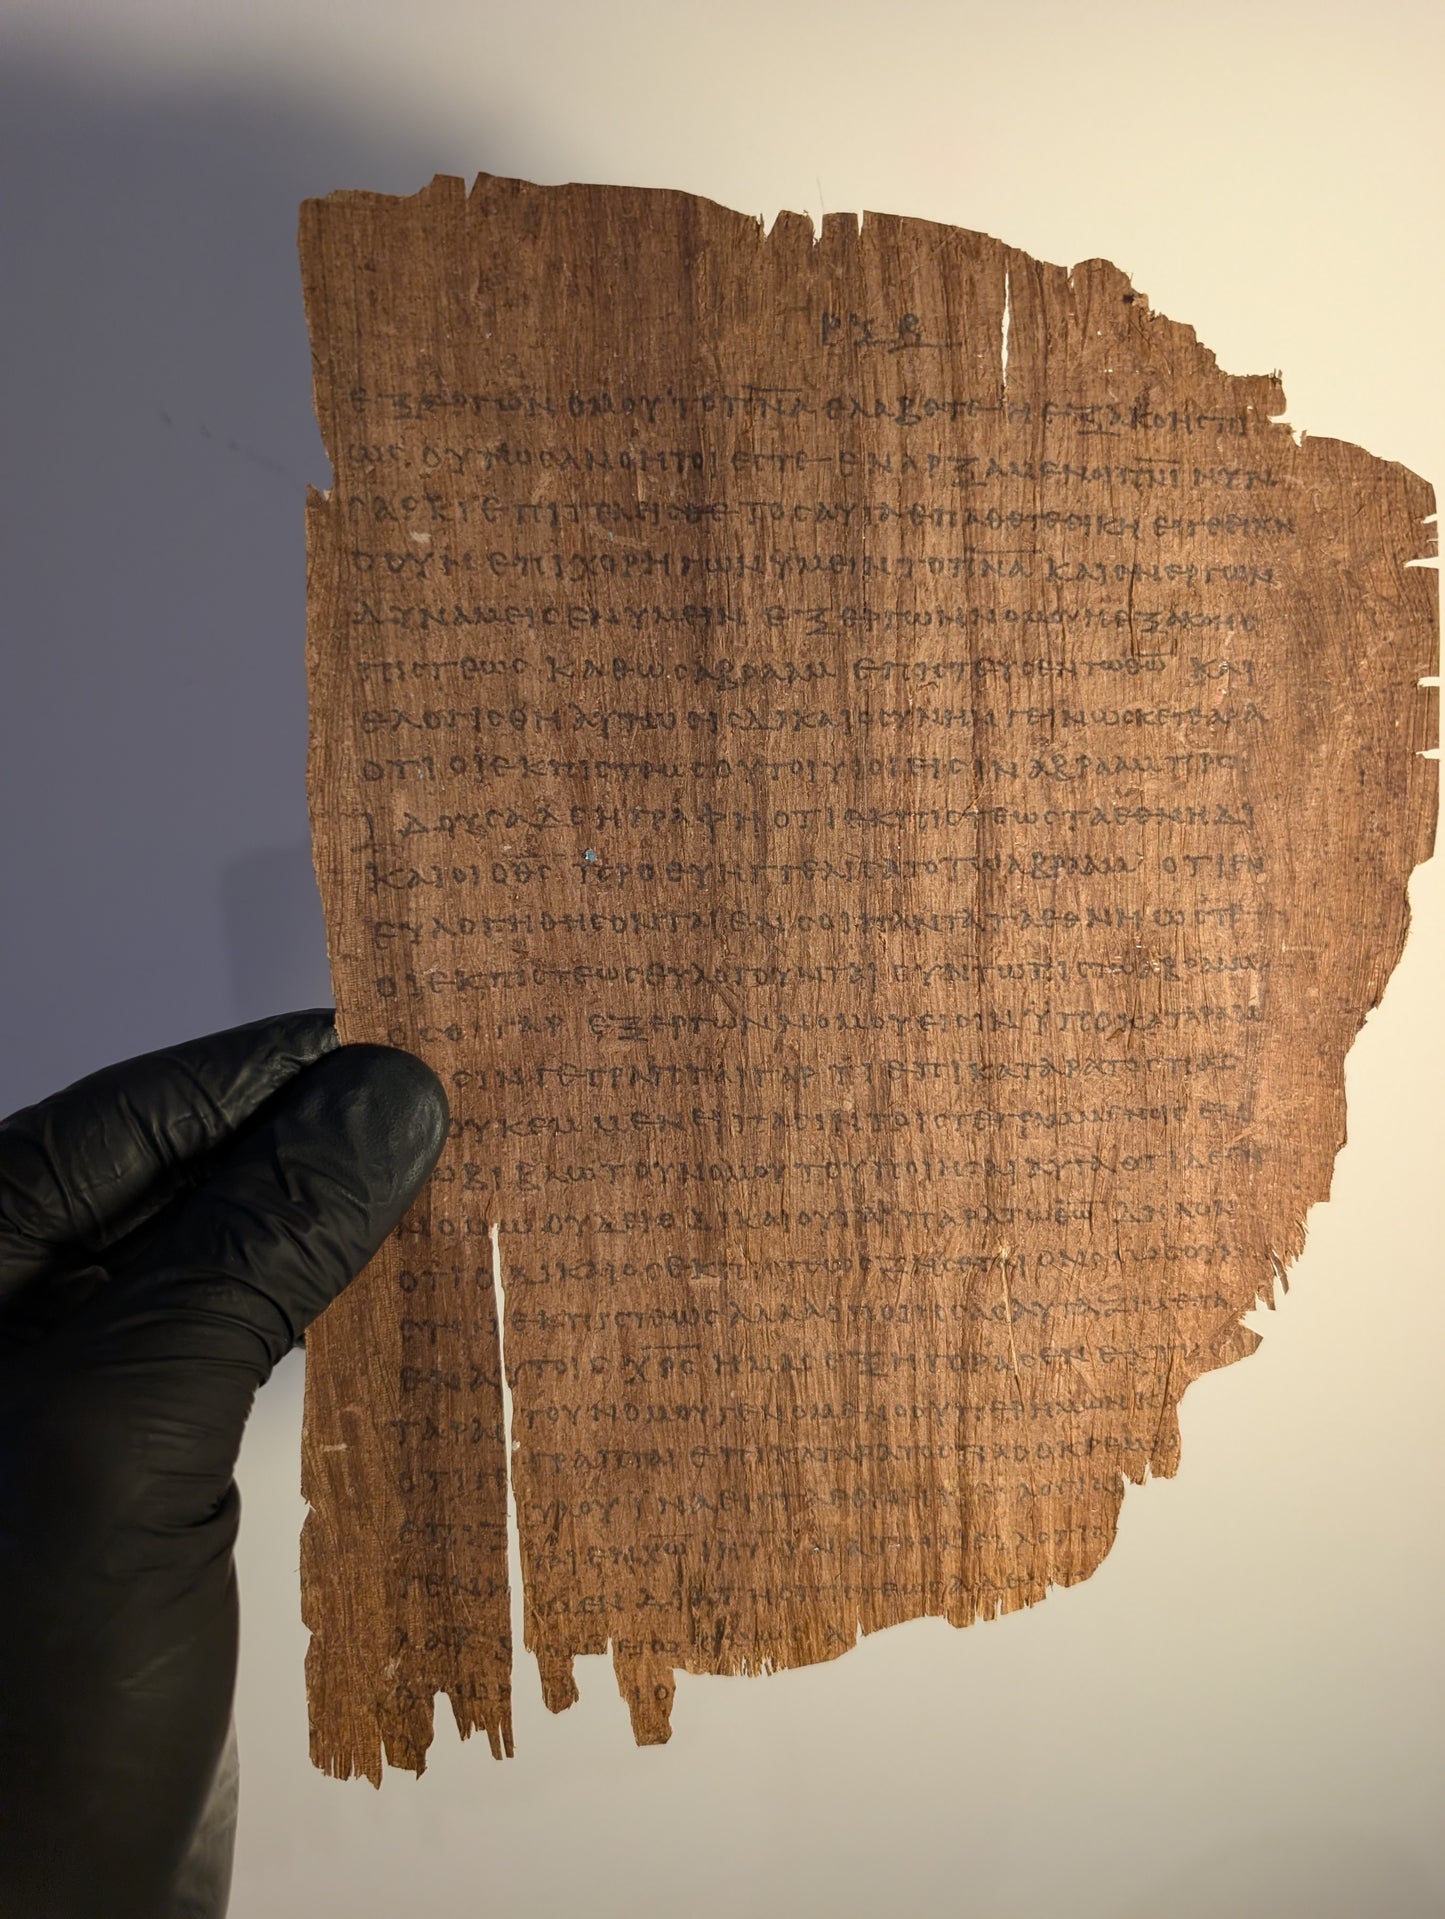 ΡΞΒ
ΕΞ ΕΡΓΩΝ ΝΟΜΟΥ ΤΟ Π̅Ν̅Α̅ ΕΛΑΒΑΤΕ Η ΕΞ ΑΚΟΗϹ ΠΙ
ΟΥΤΩϹ ΑΝΟΗΤΟΙ ΕϹΤΕ ΕΝΑΡΞΑΜΕΝΟΙ Π̅Ν̅Ι̅ ΝΥΝ
ϹΑΡΚΙ ΕΠΙΤΕΛΕΙϹΘΕ ΤΟϹΑΥΤΑ ΕΠΑΘΕΤΕ ΕΙΚΗ ΕΙ ΓΕ ΕΙΚΗ
Ο ΟΥΝ ΕΠΙΧΟΡΗΓΩΝ ΥΜΕΙΝ ΤΟ Π̅Ν̅Α̅ ΚΑΙ ΕΝΕΡΓΩΝ
ΔΥΝΑΜΕΙϹ ΕΝ ΥΜΕΙΝ ΕΞ ΕΡΓΩΝ ΝΟΜΟΥ Η ΕΞ ΑΚΟΗϹ
ΠΙϹΤΕΩϹ ΚΑΘΩϹ ΑΒΡΑΑΜ ΕΠΙϹΤΕΥϹΕΝ ΤΩ Θ̅Ω̅ ΚΑΙ
ΕΛΟΓΙϹΘΗ ΑΥΤΩ ΕΙϹ ΔΙΚΑΙΟϹΥΝΗΝ ΓΕΙΝΩϹΚΕΤΕ ΑΡΑ
ΟΤΙ ΟΙ ΕΚ ΠΙϹΤΕΩϹ ΟΥΤΟΙ ΥΙΟΙ ΕΙϹΙΝ ΑΒΡΑΑΜ ΠΡΟ
ΙΔΟΥϹΑ ΔΕ Η ΓΡΑΦΗ ΟΤΙ ΕΚ ΠΙϹΤΕΩϹ ΤΑ ΕΘΝΗ ΔΙ
ΚΑΙΟΙ Ο Θ̅Ϲ̅ ΠΡΟΕΥΗΓΓΕΛΙϹΑΤΟ ΤΩ ΑΒΡΑΑΜ ΟΤΙ
ΕΥΛΟΓΗΘΗϹΟΝΤΑΙ ΕΝ ϹΟΙ ΠΑΝΤΑ ΤΑ ΕΘΝΗ ΩϹΤΕ
ΟΙ ΕΚ ΠΙϹΤΕΩϹ ΕΥΛΟΓΟΥΝΤΑΙ ϹΥΝ ΤΩ ΠΙϹΤΩ ΑΒΡΑΑΜ
ΟϹΟΙ ΓΑΡ ΕΞ ΕΡΓΩΝ ΝΟΜΟΥ ΕΙϹΙΝ ΥΠΟ ΚΑΤΑΡΑΝ
ϹΙΝ ΓΕΓΡΑΠΤΑΙ ΓΑΡ ΟΤΙ ΕΠΙΚΑΤΑΡΑΤΟϹ ΠΑϹ
ΟΥΚ ΕΜΜΕΝΕΙ ΠΑϹΙΝ ΤΟΙϹ ΓΕΓΡΑΜΜΕΝΟΙϹ ΕΝ
ΤΩ ΒΙΒΛΙΩ ΤΟΥ ΝΟΜΟΥ ΤΟΥ ΠΟΙΗϹΑΙ ΑΥΤΑ ΟΤΙ ΔΕ ΕΝ
ΝΟΜΩ ΟΥΔΕΙϹ ΔΙΚΑΙΟΥΤΑΙ ΠΑΡΑ ΤΩ Θ̅Ω̅ ΔΗΛΟΝ
ΟΤΙ Ο ΔΙΚΑΙΟϹ ΕΚ ΠΙϹΤΕΩϹ ΖΗϹΕΤΑΙ Ο ΝΟΜΟϹ ΟΥΚ
ΕϹΤΙΝ ΕΚ ΠΙϹΤΕΩϹ ΑΛΛΑ Ο ΠΟΙΗϹΑϹ ΑΥΤΑ ΖΗϹΕΤΑΙ
ΕΝ ΑΥΤΟΙϹ Χ̅Ρ̅Ϲ̅ ΗΜΑϹ ΕΞΗΓΟΡΑϹΕΝ ΕΚ ΤΗϹ
ΤΑΡΑϹ ΤΟΥ ΝΟΜΟΥ ΓΕΝΟΜΕΝΟϹ ΥΠΕΡ ΗΜΩΝ Κ
ΟΤΙ ΓΕΓΡΑΠΤΑΙ ΕΠΙΚΑΤΑΡΑΤΟϹ ΠΑϹ Ο ΚΡΕΜ
ΕΠΙ ΞΥΛΟΥ ΙΝΑ ΕΙϹ ΤΑ ΕΘΝΗ Η ΕΥΛΟΓΙΑ
ΓΕΝΗΤΑΙ ΕΝ Χ̅Ω̅ Ι̅Η̅Υ̅ ΙΝΑ ΤΗΝ ΕΥΛΟΓΙΑ
ΛΑΒΩΜΕΝ ΔΙΑ ΤΗϹ ΠΙϹΤΕΩϹ ΑΔΕΛ